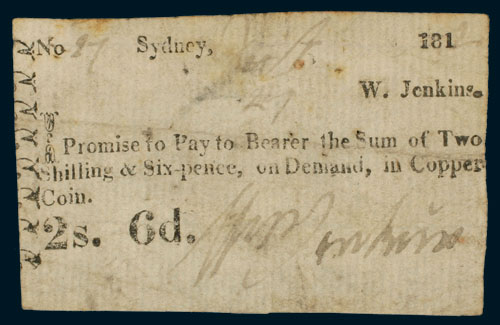 No 87 Sydney, 181
W. Jenkins.
Promise to Pay to Bearer the Sum of Two
Shilling & Six-pence, on Demand, in Copper
Coin.
2s. 6d.